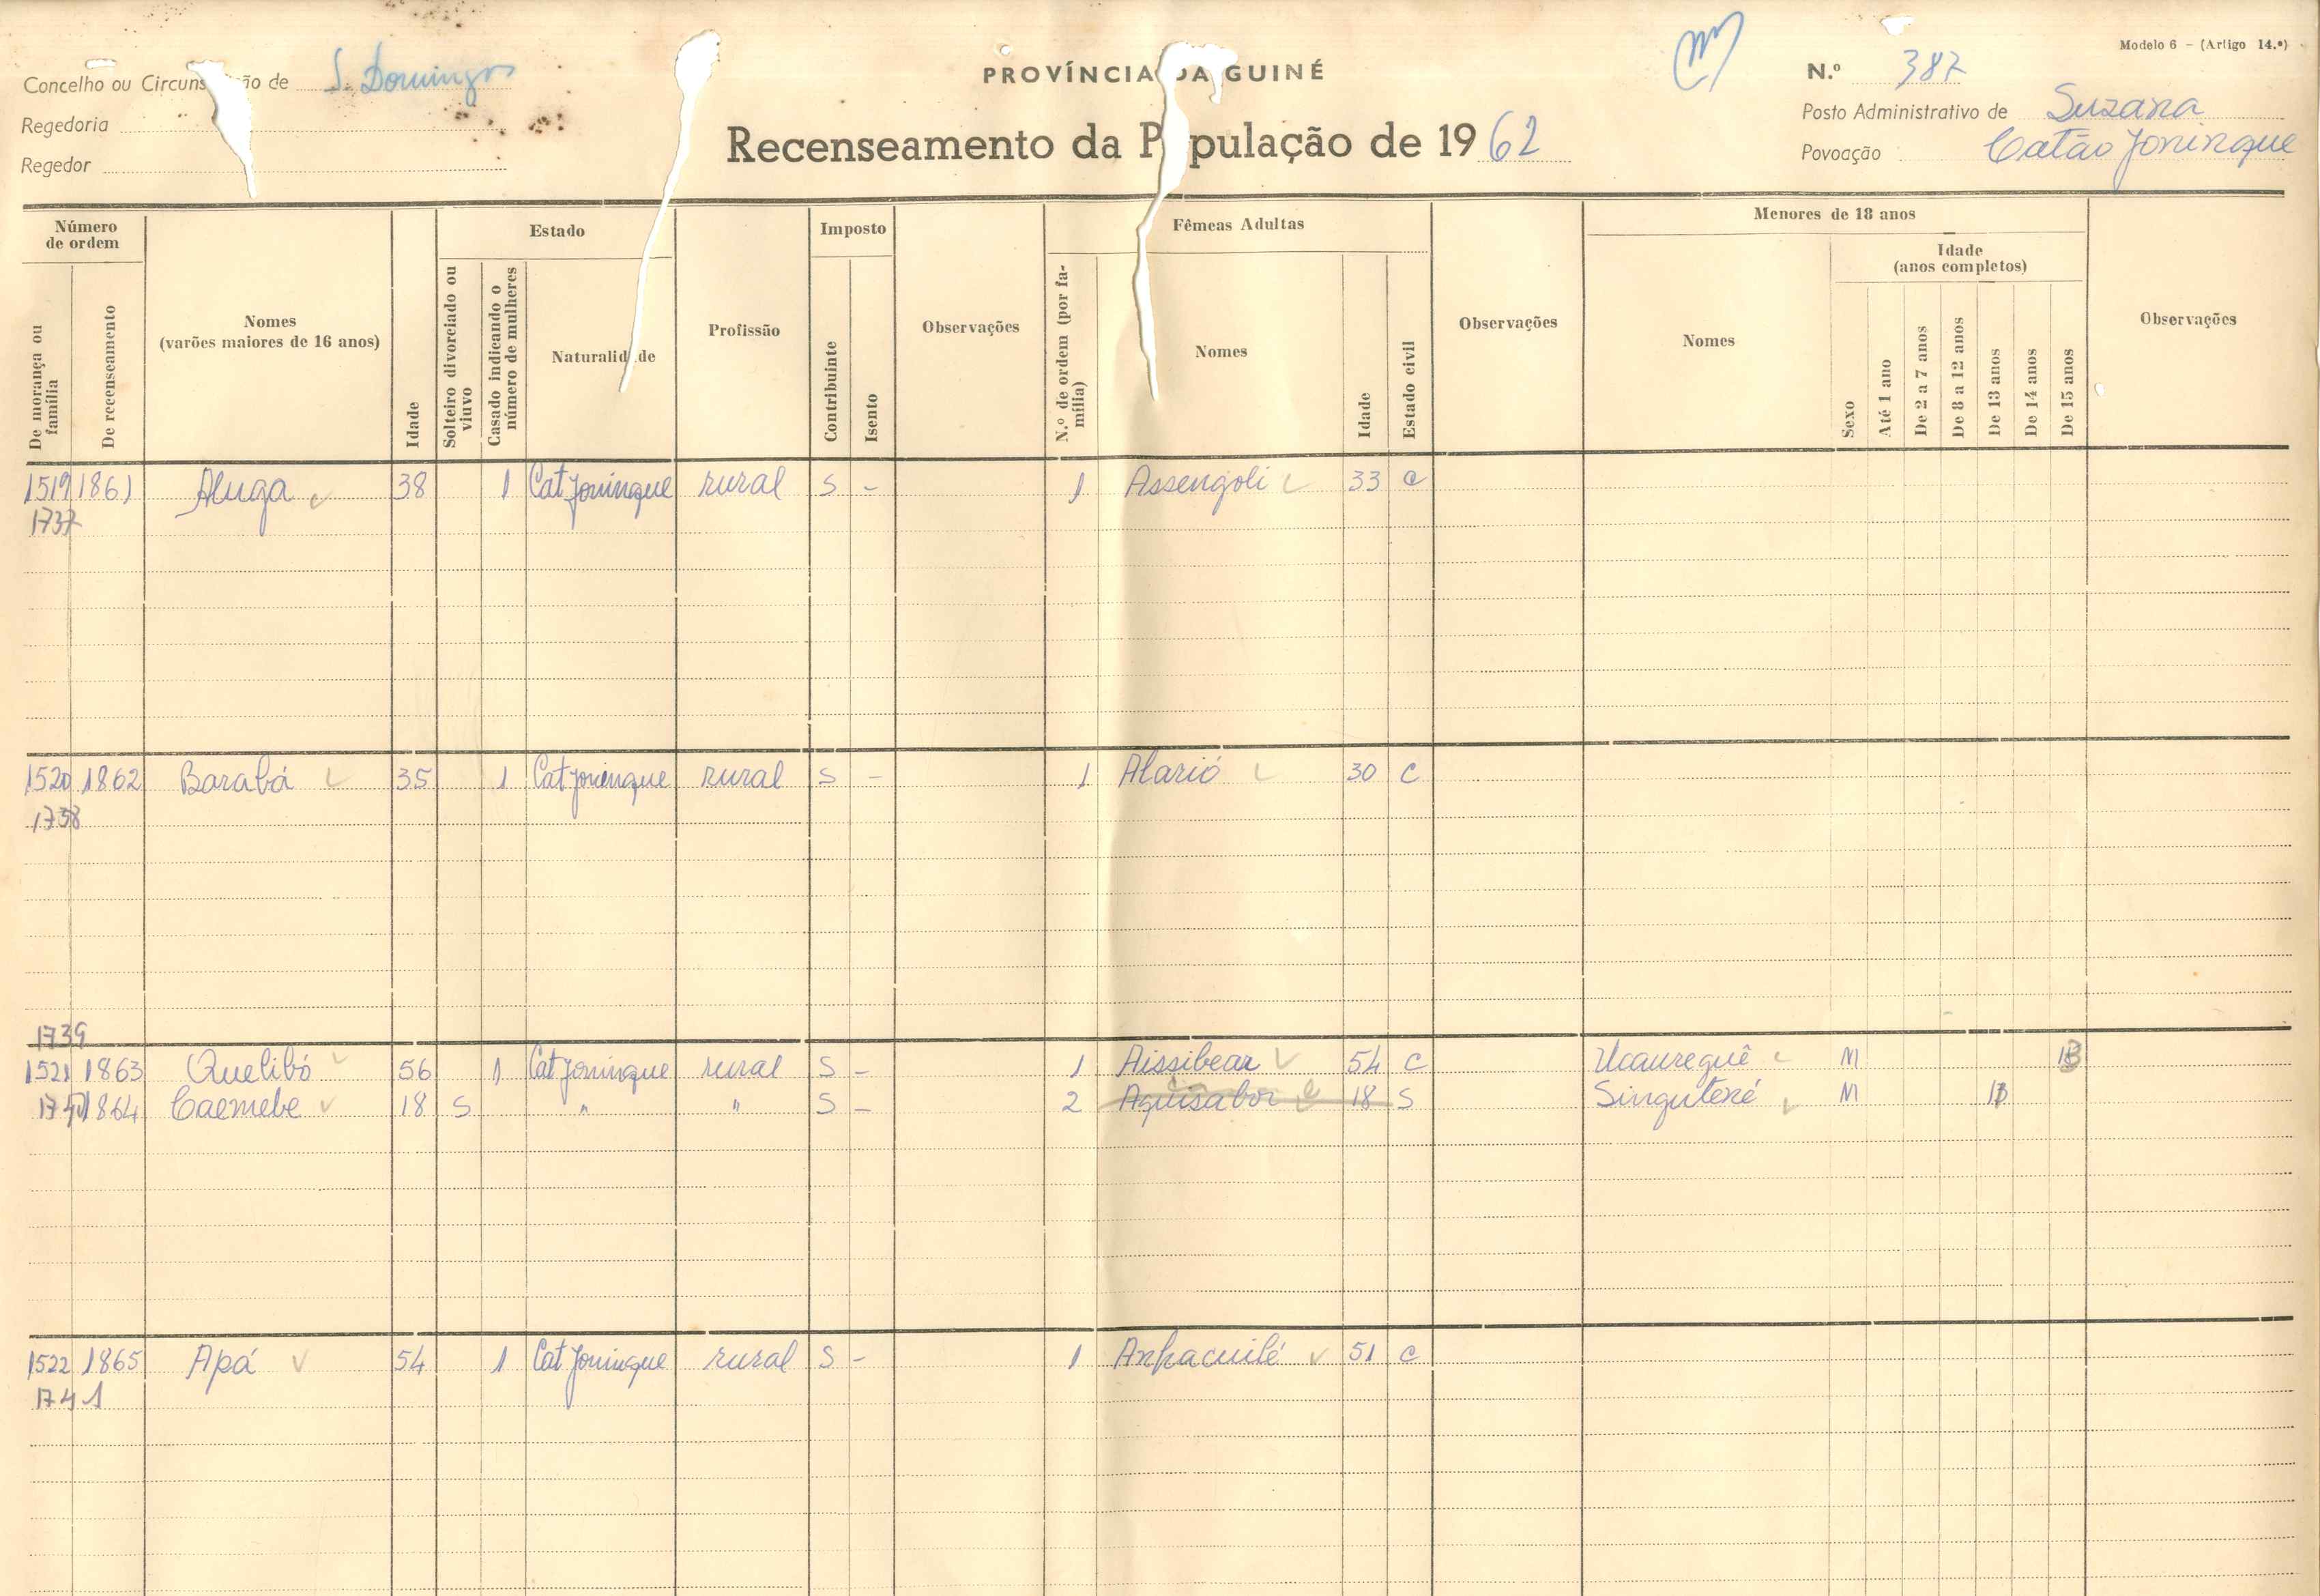 Modelo 6 - (Artigo 14.º)
Concelho ou Circuns ão de S. Domingos
PROVÍNCIA DA GUINÉ
N.º 387
Regedoria
Posto Administrativo de Suzana
Recenseamento da P pulação de 1962
Povoação Catão Joninque
Regedor
Número de ordem
De morança ou família
De recenseamento
Nomes
(varões maiores de 16 anos)
Idade
Estado
Solteiro divorciado ou viuvo
Casado indicando o número de mulheres
Naturalidade
Profissão
Imposto
Contribuinte
Isento
Observações
Fêmeas Adultas
N.º de ordem (por família)
Nomes
Idade
Estado civil
Observações
Menores de 18 anos
Nomes
Sexo
Idade
(anos completos)
Até 1 ano
De 2 a 7 anos
De 8 a 12 anos
De 13 anos
De 14 anos
De 15 anos
Observações
1519 1861 Aluga 38 1 Cat Joninque rural S - 1 Assengoli 33 c
1737
1520 1862 Barabá 35 1 Cat Joninque rural S - 1 Alarió 30 c
1738
1739
1521 1863 Quelibó 56 1 Cat Joninque rural S - 1 Aissibear 54 c Ucaureguê M
1864 Caemebe 18 S " " S - 2 Aquisabor 18 S Singuteré M
1522 1865 Apá 54 1 Cat Joninque rural S - 1 Anhacuilé 51 c
1741